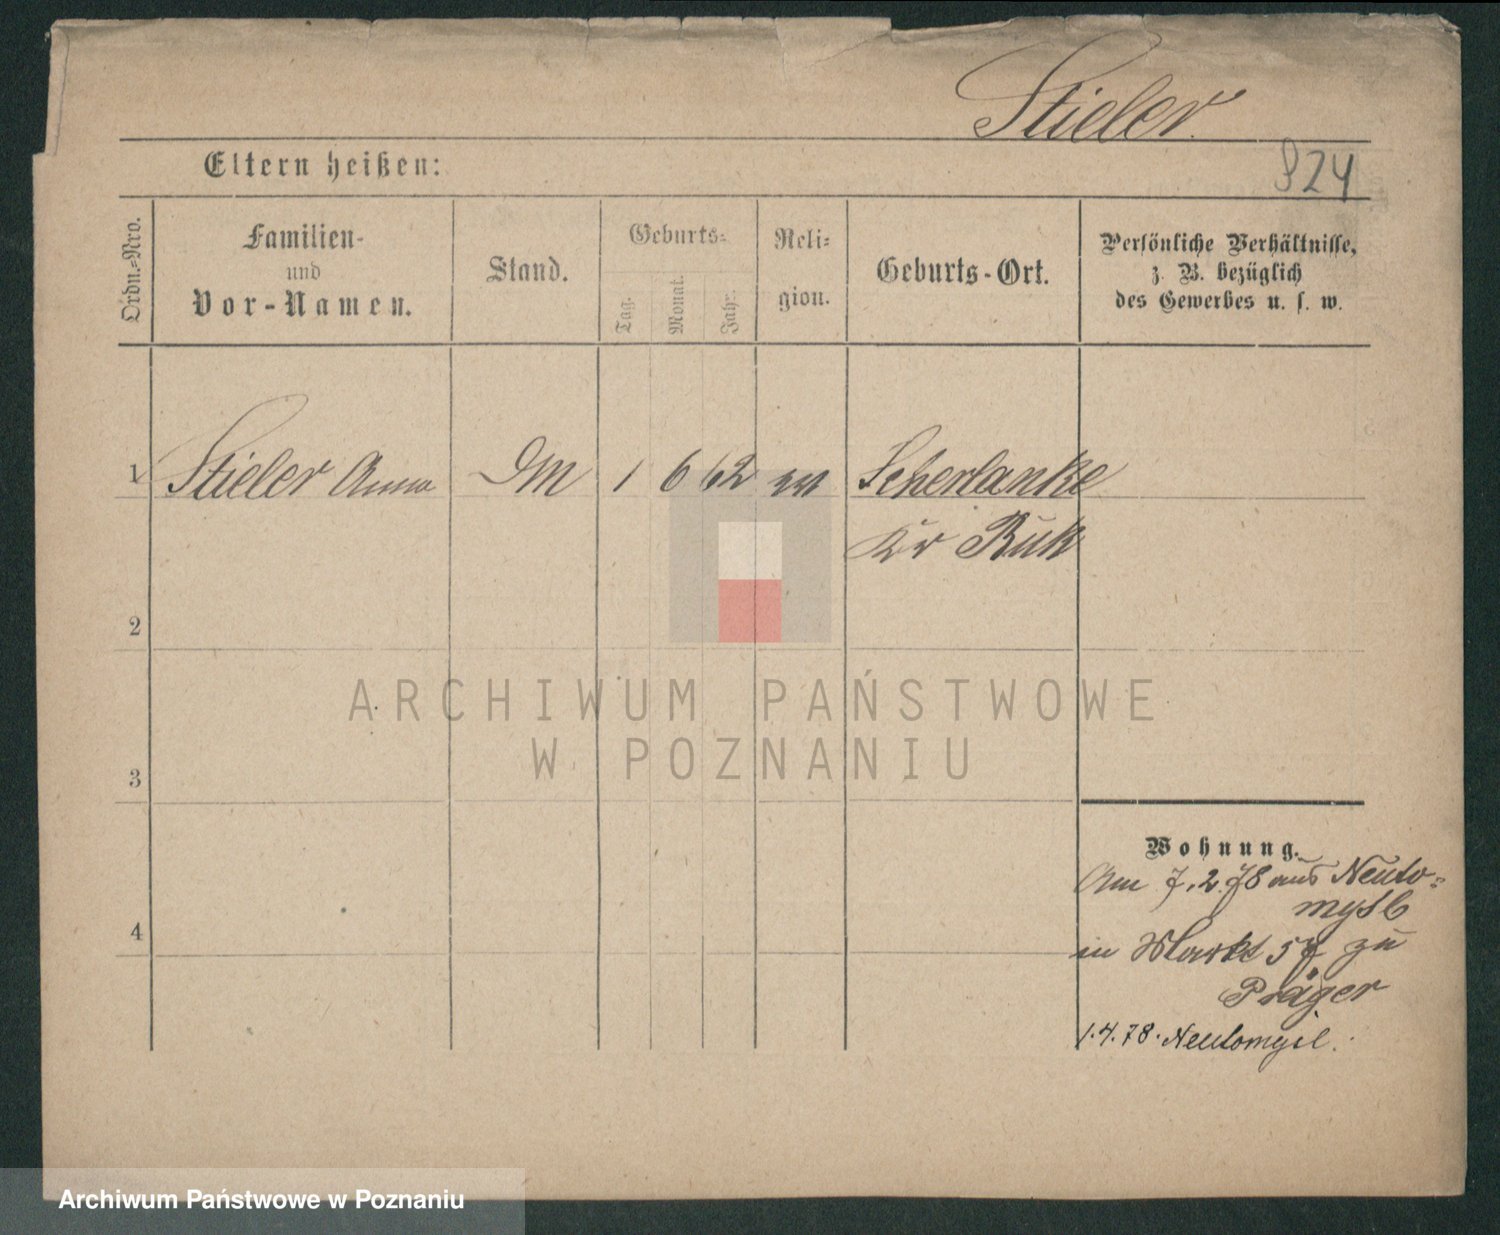 Stieler.
824
Eltern heißen:
Ordn.=Nro.
Familien-
und
Vor-Namen.
Stand.
Geburts-
Tag.
Monat.
Jahr.
Reli-
gion.
Geburts-Ort.
Persönliche Verhältnisse,
z. B. bezüglich
des Gewerbes u. s. w.
1 Stieler Anna DM 1 6 62 ev Scherlanke
Kr Buk
2
3
4
Wohnung.
Am 7.2.78 aus Neuto=
mysl
in Markt 57 zu
Präger
1.4.78. Neutomysl.
ARCHIWUM PAŃSTWOWE
W POZNANIU
Archiwum Państwowe w Poznaniu